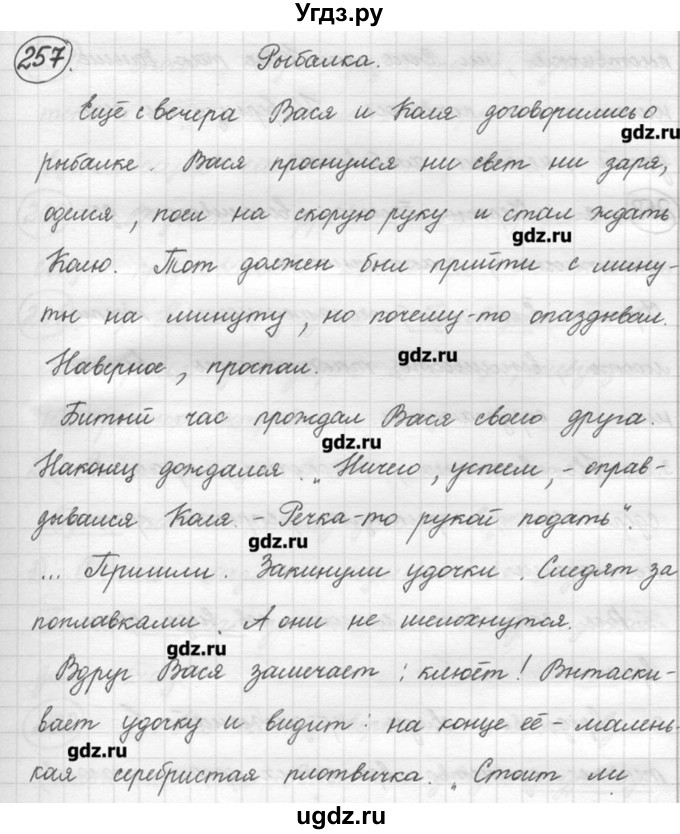 Угдз.ру
257. Рыбалка.
Ещё с вечера Вася и Коля договорились о
gdz.ru
рыбалке. Вася проснулся ни свет ни заря,
оделся, поел на скорую руку и стал ждать
gdz.ru
Колю. Тот должен был прийти с мину-
ты на минуту, но почему-то опаздывал.
gdz.ru
Наверное, проспал.
Битый час прождал Вася своего друга.
gdz.ru
Наконец дождался. „Ничего, успеем, - оправ-
дывался Коля. - Речка-то рукой подать".
gdz.ru
... Пришли. Закинули удочки. Следят за
поплавками. А они не шелохнутся.
gdz.ru
Вдруг Вася замечает: клюёт! Вытаски-
вает удочку и видит: на конце её - малень-
gdz.ru
кая серебристая плотвичка. „Стоит ли
gdz.ru